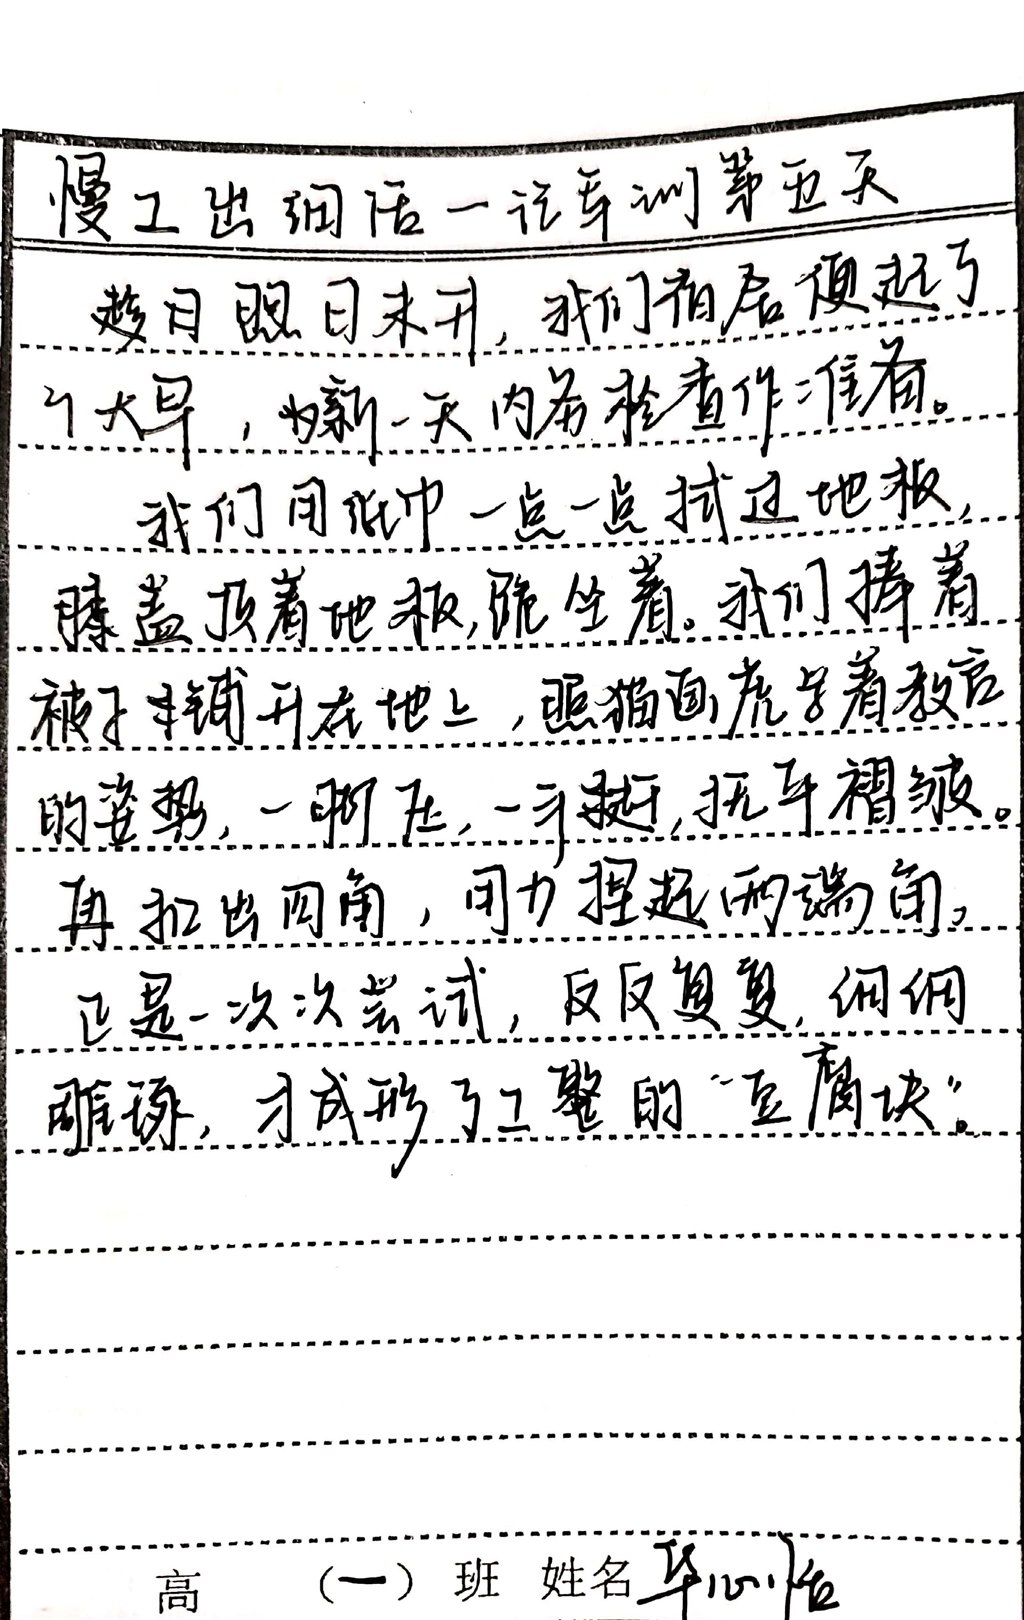 慢工出细活一记军训第五天
趁日照日未升，我们宿居便起了
个大早，为新一天内务检查作准备。
我们用纸巾一点一点拭过地板，
膝盖顶着地板，跪坐着。我们捧着
被子铺开在地上，照猫画虎学着教官
的姿势，一脚压，一手挺，抚平褶皱。
再扣出四角，用力捏起两端角。
正是一次次尝试，反反复复，细细
雕琢，才成形了工整的“豆腐块”。
高 （一）班 姓名